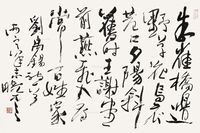 朱雀橋邊
野草花烏衣
巷口夕陽斜
舊時王謝堂
前燕飛入尋
常百姓家
劉禹錫詩